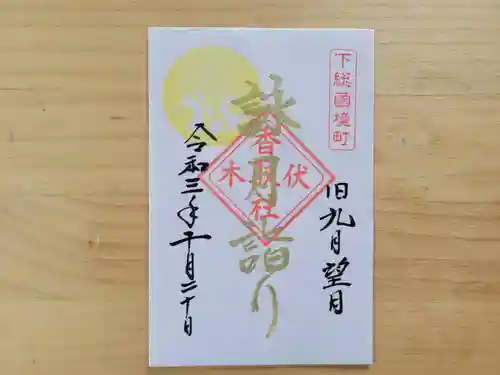 下総國境町
旧九月望月
詠月詣り
香取社
伏木
令和三年十月二十日